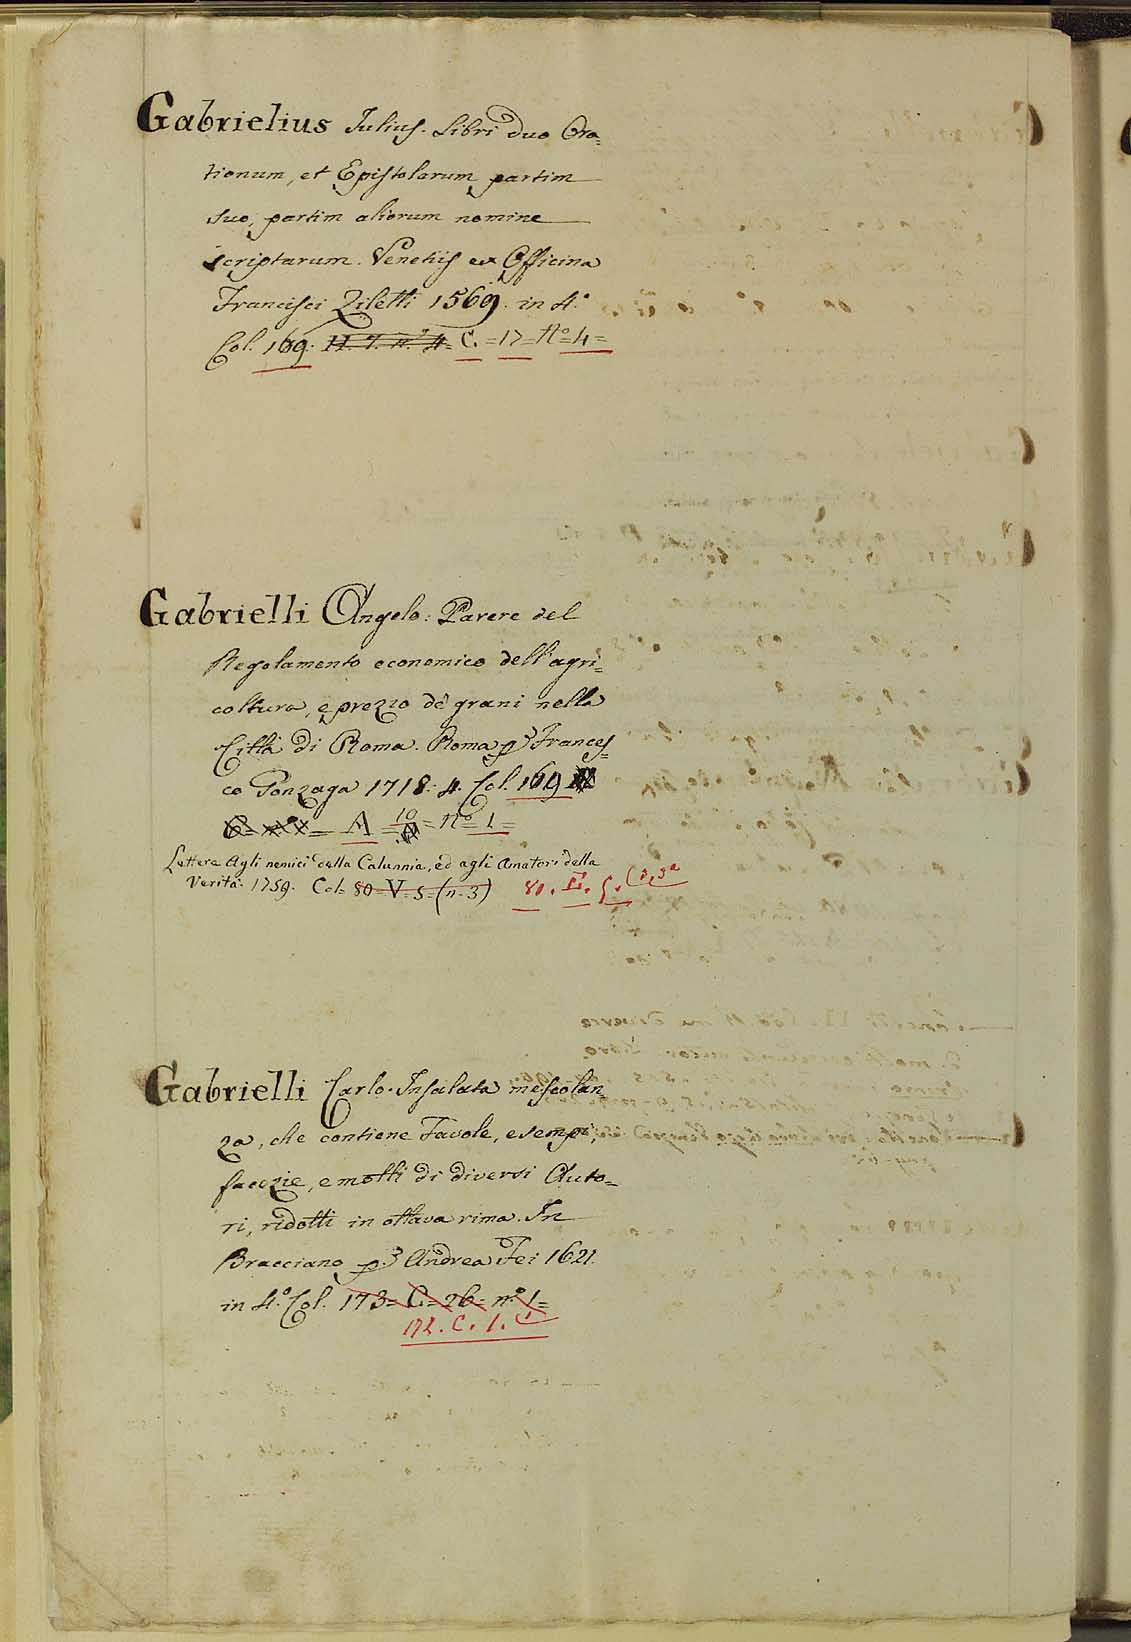 Gabrielius Julius. Libri duo Ora=
tionum, et Epistolarum partim
suo, partim aliorum nomine
scriptarum. Venetiis ex Officina
Francisci Ziletti 1569. in 4.º
Col. 169. H. 7. n.º 4= C. =17= Nº=4=
Gabrielli Angelo: Parere del
Regolamento economico dell'agri=
coltura, e prezzo de' grani nella
Città di Roma. Roma p Frances=
co Gonzaga 1718: 4. Col. 169
A = 10 = Nº=1=
Lettera agli nemici della Calunnia, ed agli Amatori della
Verità. 1759. Col= 80=V=5=(n=3) 80. 5. (3,3ª
Gabrielli Carlo. Insalata mescolan=
za, che contiene Favole, esempi,
facezie, e motti di diversi Auto=
ri, ridotti in ottava rima. In
Bracciano p Andrea Fei 1621.
in 4.º Col. 173= C=26= n.º 1=
172. C. 1.